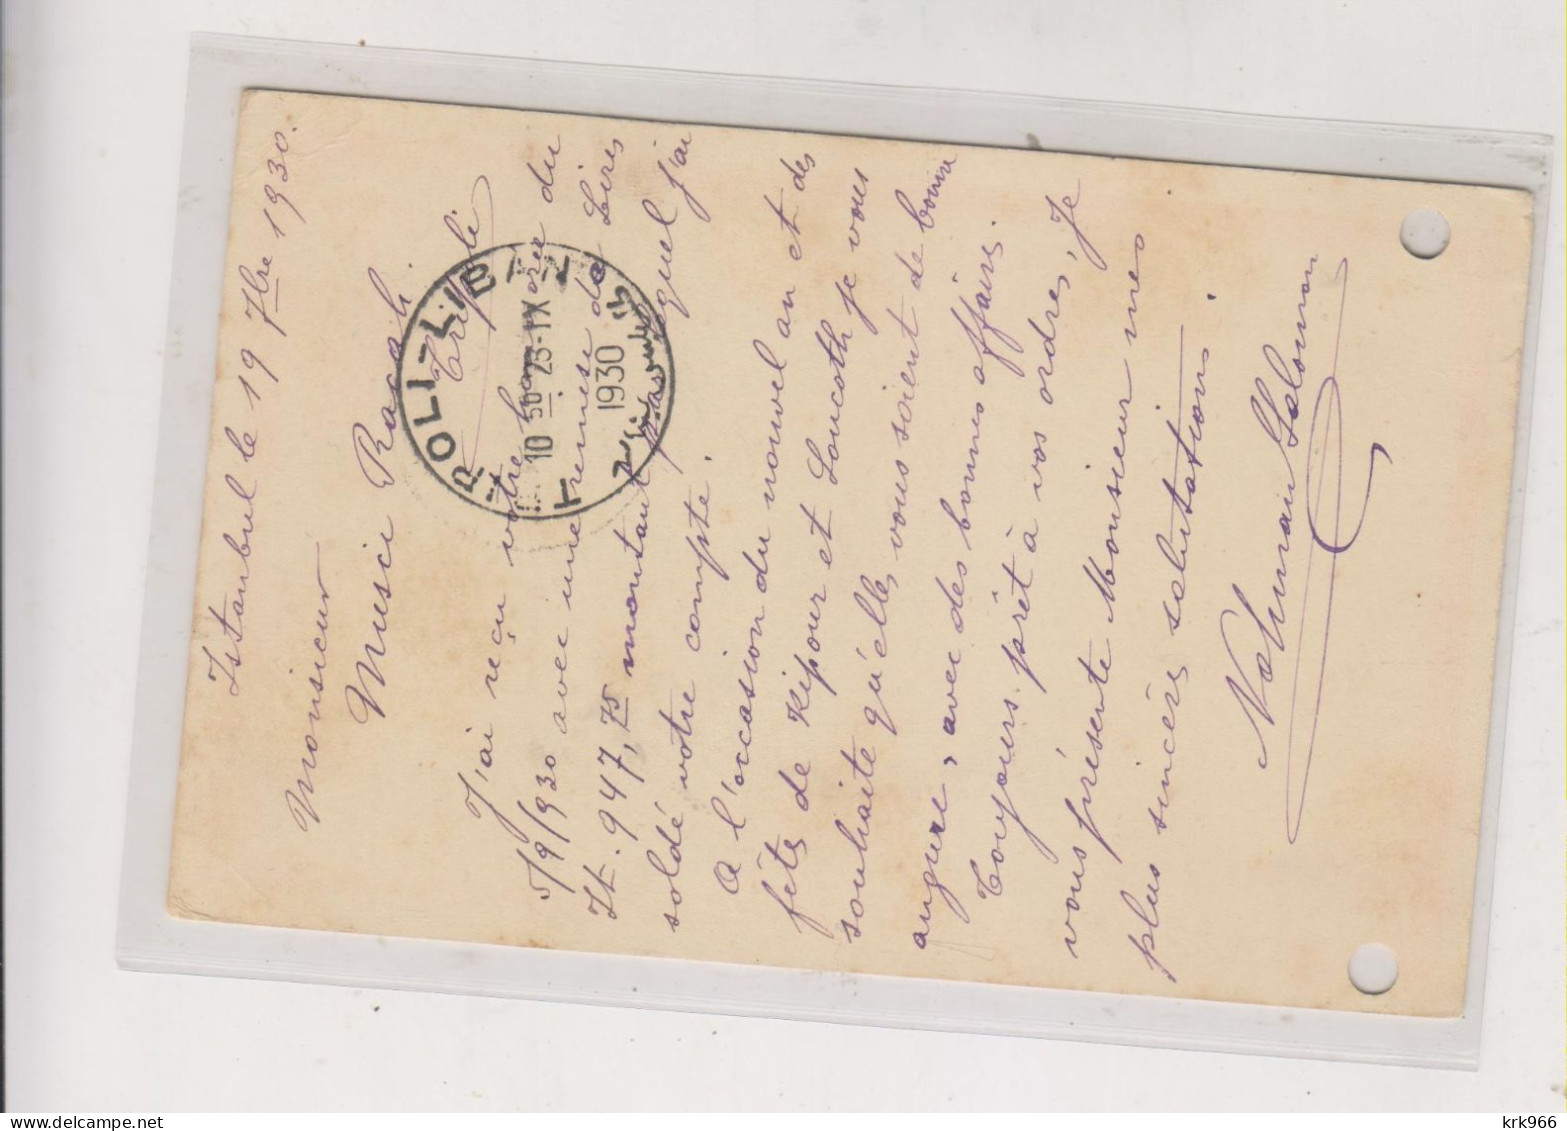 Istanbul le 19 7bre 1930.
Monsieur
Musci Racah
Tripoli
J'ai reçu votre honorée du
5/9/930 avec une remise de Lires
It. 947,75 montant par quel j'ai
soldé votre compte.
A l'occasion du nouvel an et des
fêtes de Kipour et Soucoth je vous
souhaite qu'elles vous soient de bonne
augure, avec des bonnes affaires.
Toujours prêt à vos ordres, Je
vous présente Monsieur mes
plus sincères salutations.
Nahman Salomon
TRIPOLI-LIBAN
10 30
23-IX
1930
krk966